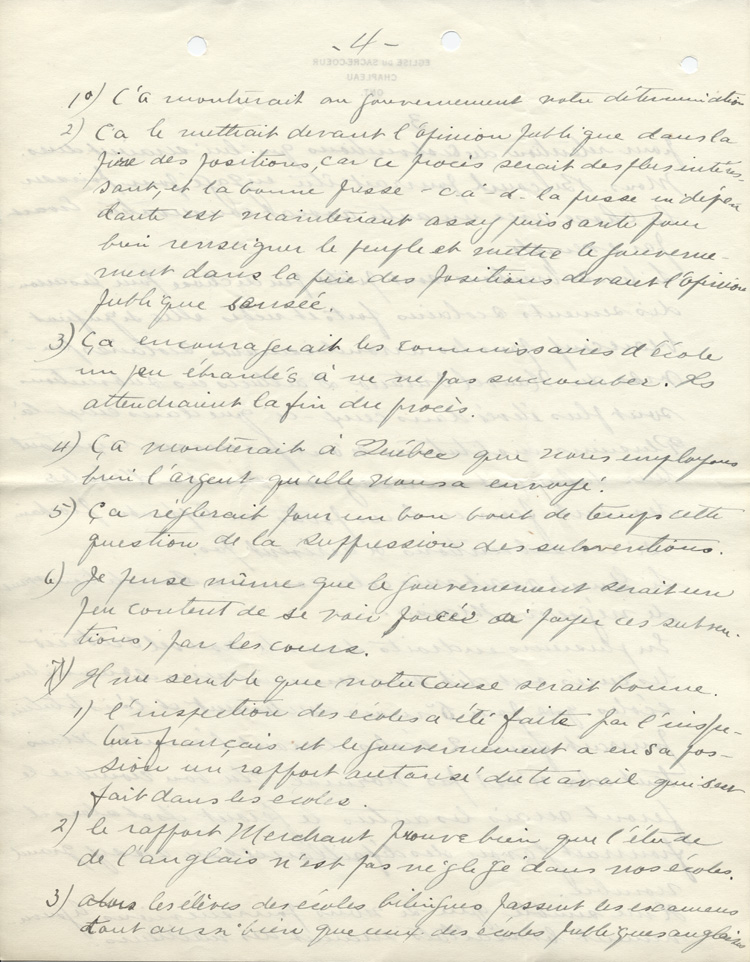 - 4 -
1º) Ç'a montrerait au gouvernement notre détermination
2) Ça le mettrait devant l'opinion publique dans la
pire des positions, car ce procès serait des plus intéres-
sant, et la bonne presse - c.à-d. la presse indépen
dante est maintenant assez puissante pour
bien renseigner le peuple et mettre le gouverne-
ment dans la pire des positions devant l'opinion
publique sensée.
3) Ça encouragerait les commissaires d'école
un peu ébranlés à ne ne pas succomber. Ils
attendraient la fin du procès.
4) Ça montrerait à Québec que nous employons
bien l'argent qu'elle nous a envoyé.
5) Ça réglerait pour un bon bout de temps cette
question de la suppression des subventions.
6) Je pense même que le gouvernement serait un
peu content de se voir forcé de payer ces subven-
tions, par les cours.
IV) Il me semble que notre cause serait bonne.
1) l'inspection des écoles a été faite par l'inspec-
teur français et le gouvernement a en sa pos-
sion un rapport autorisé du travail qui sest
fait dans les écoles.
2) le rapport Merchant prouve bien que l'étude
de l'anglais n'est pas négligé dans nos écoles.
3) alors les élèves des écoles bilingues passent les examens
tout aussi bien que ceux des écoles publiques anglaises
ÉGLISE DU SACRÉ-COEUR
CHAPLEAU
ONT.